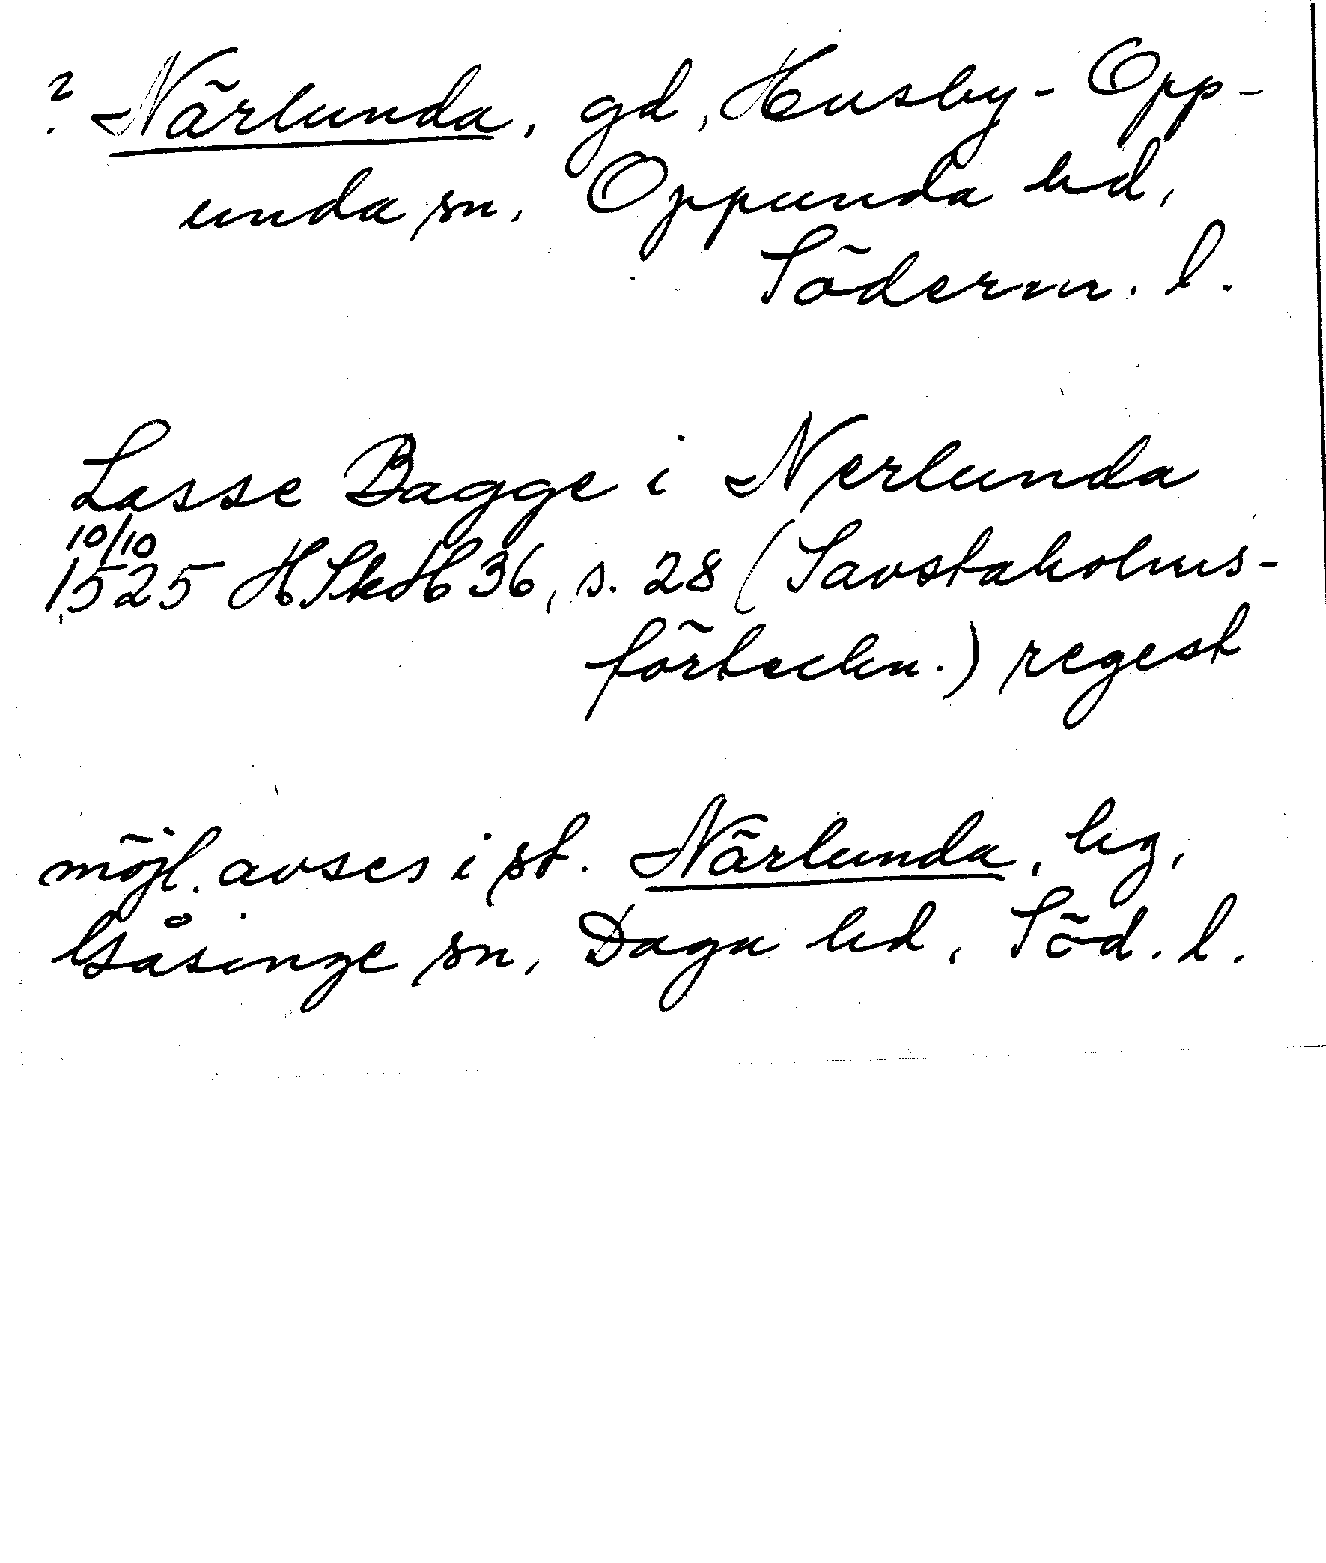 ? Närlunda, gd, Husby-Opp-
unda sn, Oppunda hd,
Söderm. l.
Lasse Bagge i Nerlunda
10/10
1525 HSkH 36, s. 28 (Savstaholms-
förteckn.) regest
möjl. avses i st. Närlunda, hg,
Gåsinge sn, Daga hd, Söd. l.